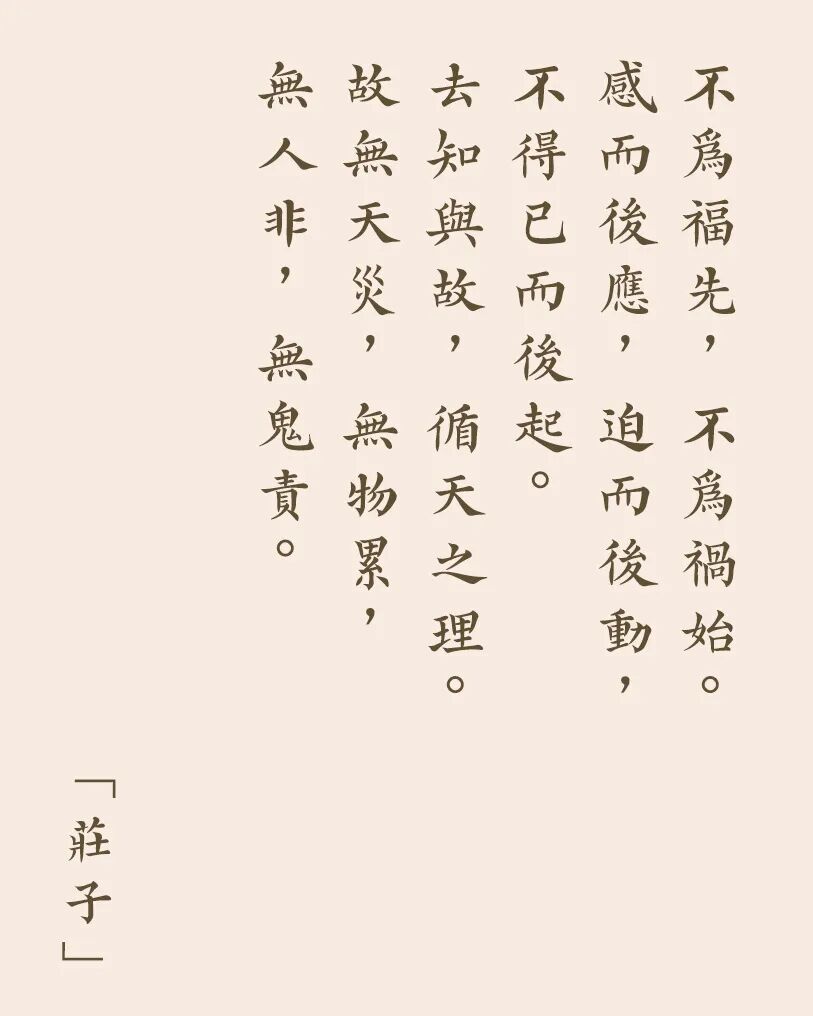 不爲福先，不爲禍始。
感而後應，迫而後動，
不得已而後起。
去知與故，循天之理。
故無天災，無物累，
無人非，無鬼責。
「莊子」